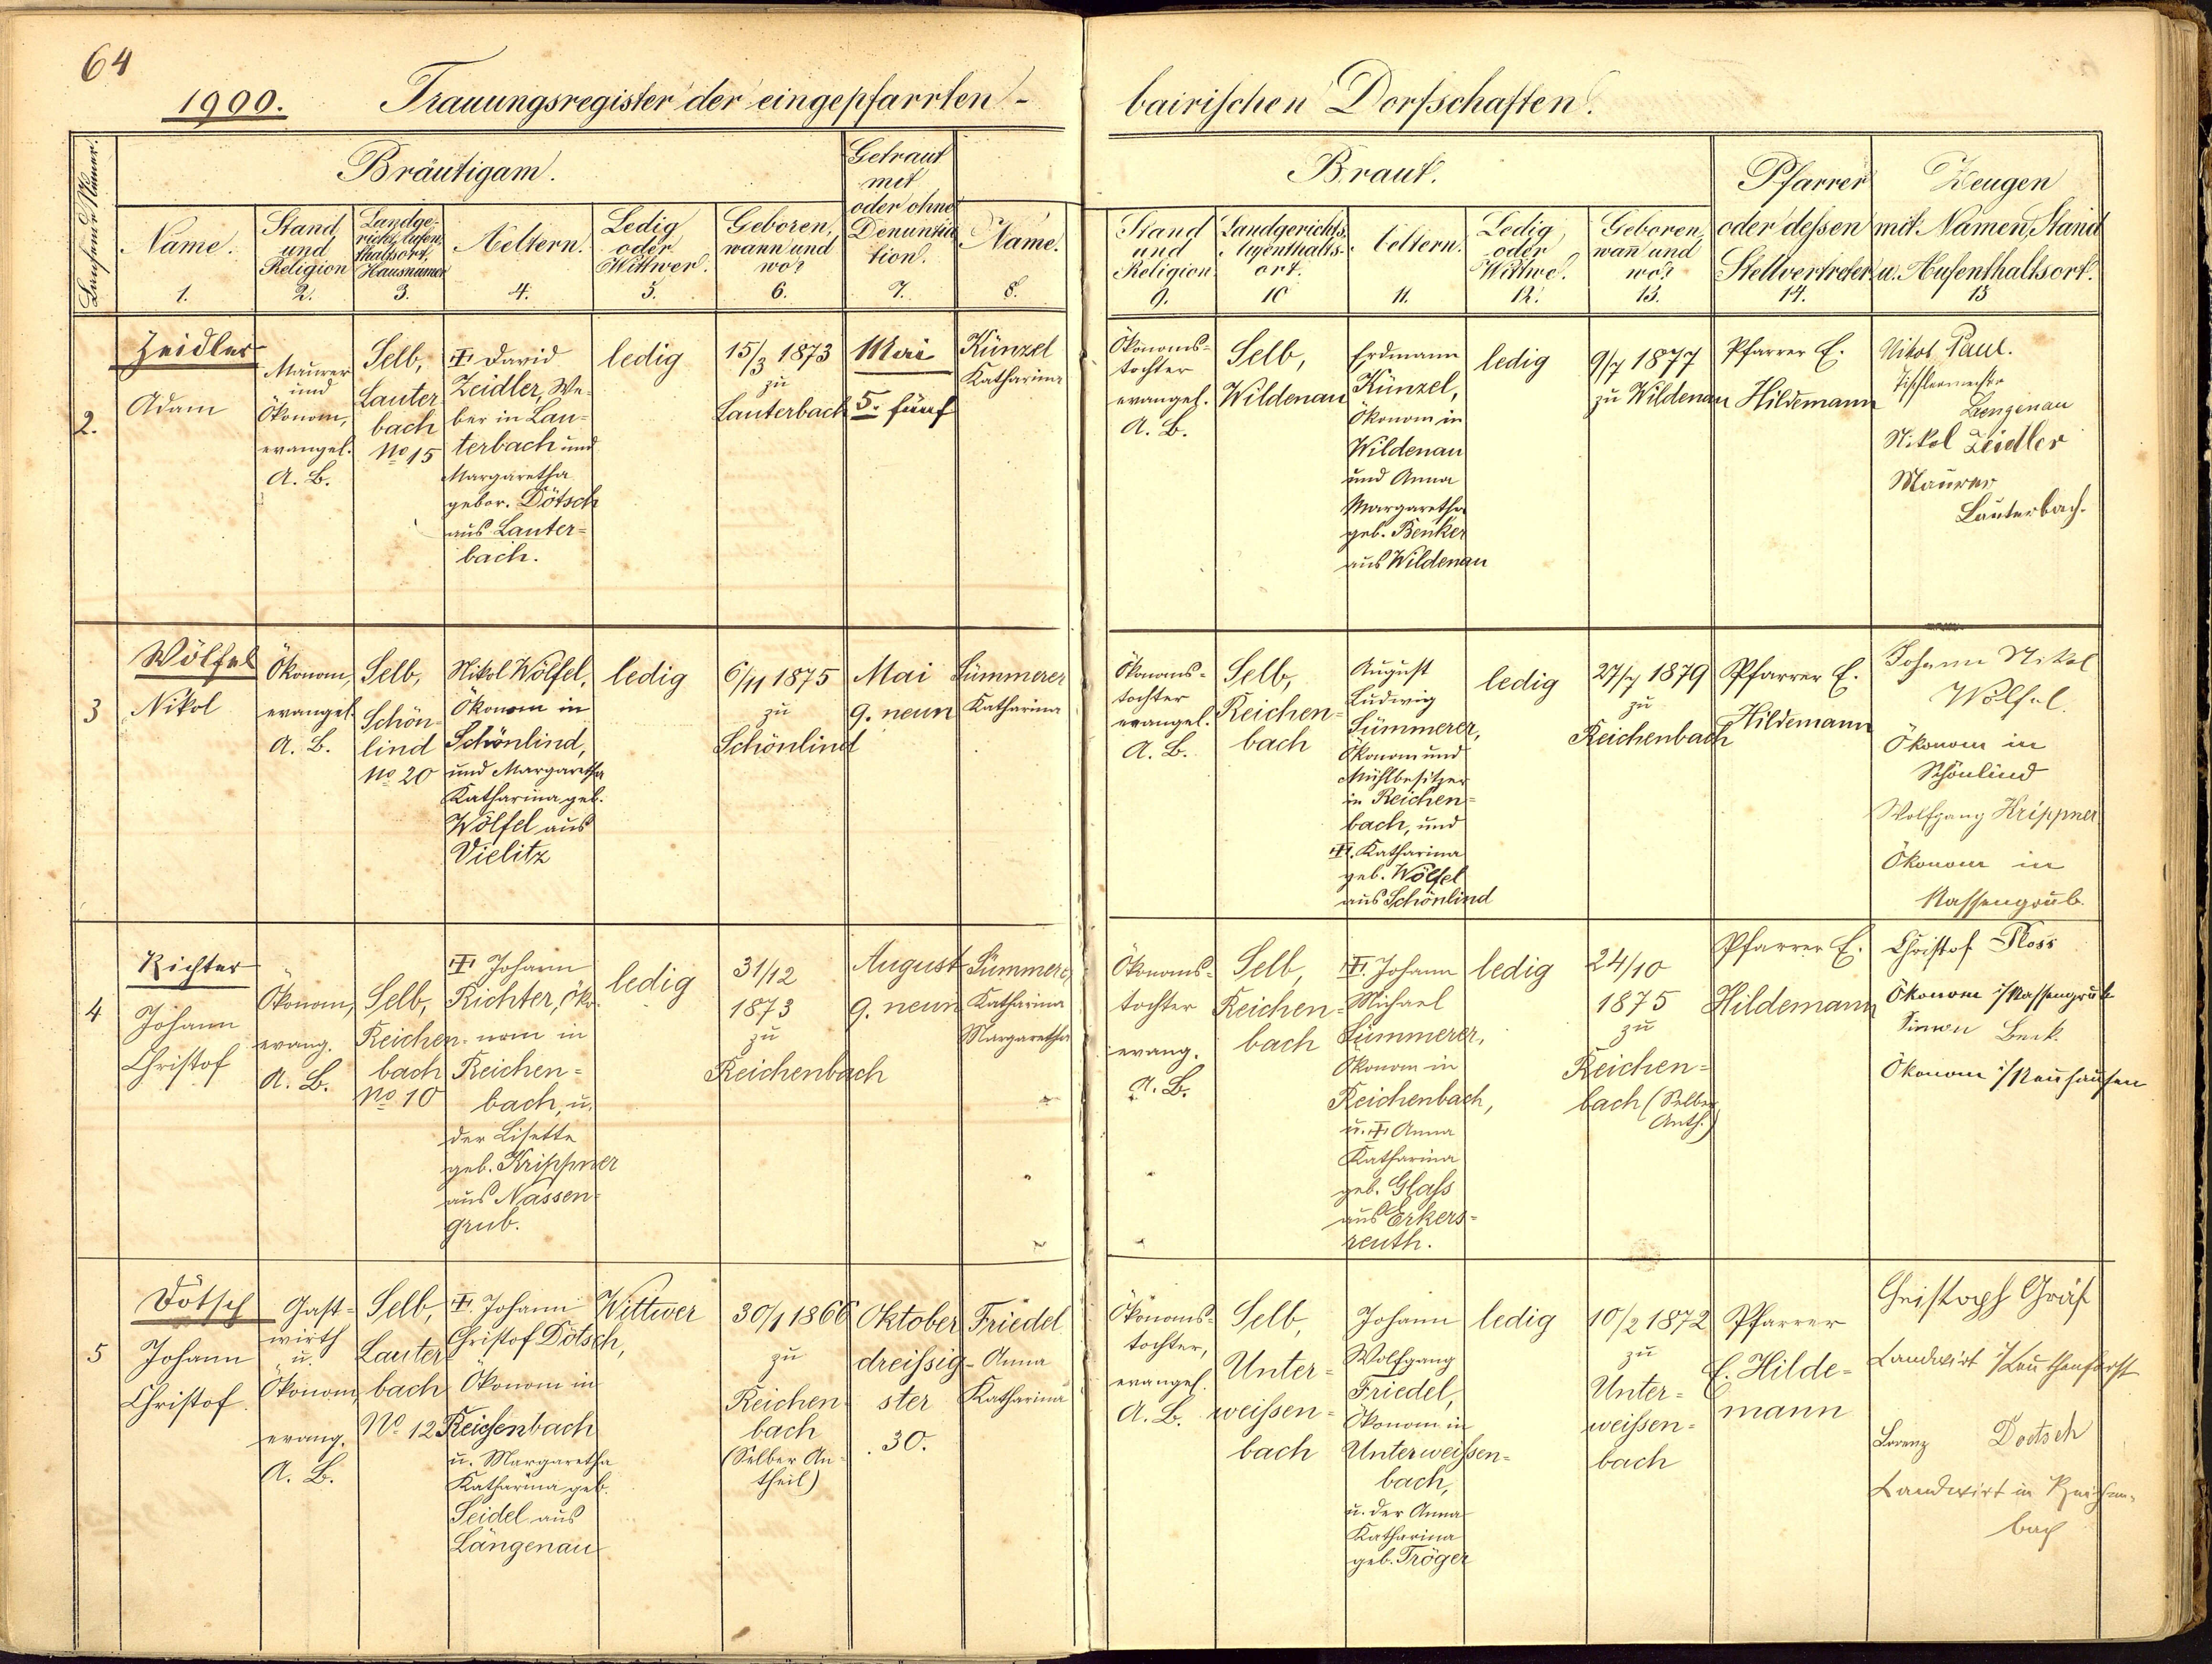 64
1900. Trauungsregister der eingepfarrten-
bairischen Dorfschaften.
Laufende Numer.
Bräutigam.
Name.
1.
Stand
und
Religion
2.
Landge-
richt, Aufen-
thaltsort,
Hausnumer
3.
Aeltern.
4.
Ledig
oder
Wittwer.
5.
Geboren,
wann und
wo?
6.
Getraut
mit
oder ohne
Denuntia
tion.
7.
Name.
8.
Braut.
Stand
und
Religion
9.
Landgerichts
Augenthalts-
ort.
10
Aeltern.
11.
Ledig
oder
Wittwe.
12.
Geboren,
wañ und
wo?
13.
Pfarrer
oder dessen
Stellvertreter
14.
Zeugen
mit Namen, Stand
u. Aufenthaltsort.
15
2.
Zeidler
Adam
Maurer
und
Ökonom,
evangel.
A. B.
Selb,
Lauter
bach
No 15
David
Zeidler, We-
ber in Lau-
terbach und
Margaretha
gebor. Dötsch
aus Lauter-
bach.
ledig
15/3 1873
zu
Lauterbach
Mai
5. fünf
Künzel
Katharina
Ökonoms-
tochter
evangel.
A. B.
Selb,
Wildenau
Erdmann
Künzel,
Ökonom in
Wildenau
und Anna
Margaretha
geb. Benker
aus Wildenau
ledig
9/7 1877
zu Wildenau
Pfarrer E.
Hildemann
Nikol Paul.
Tischlermeister
Längenau
Nikol Zeidler
Maurer
Lauterbach.
3
Wölfel
Nikol
Ökonom,
evangel.
A. B.
Selb,
Schön-
lind
No 20
Nikol Wölfel,
Ökonom in
Schönlind,
und Margaretha
Katharina geb.
Wölfel aus
Vielitz
ledig
6/11 1875
zu
Schönlind
Mai
9. neun
Summerer
Katharina
Ökonoms-
tochter
evangel.
A. B.
Selb,
Reichen-
bach
August
Ludwig
Summerer,
Ökonom und
Mühlbesitzer
in Reichen-
bach, und
Katharina
geb. Wölfel
aus Schönlind
ledig
27/7 1879
zu
Reichenbach
Pfarrer E.
Hildemann
Johann Nikol
Wölfel.
Ökonom in
Schönlind
Wolfgang Krippner
Ökonom in
Nassengrub.
4
Richter
Johann
Christof
Ökonom,
evang.
A. B.
Selb,
Reichen-
bach
No 10
Johann
Richter, Öko-
nom in
Reichen-
bach, u.
der Lisette
geb. Krippner
aus Nassen-
grub.
ledig
31/12
1873
zu
Reichenbach
August
9. neun
Summerer
Katharina
Margaretha
Ökonoms-
tochter
evang.
A. B.
Selb,
Reichen-
bach
Johann
Michael
Summerer,
Ökonom in
Reichenbach,
u. Anna
Katharina
geb. Glass
aus Erkers-
reuth.
ledig
24/10
1875
zu
Reichen-
bach (Selber
Anth.)
Pfarrer E.
Hildemann
Christof Ploss
Ökonom i/Nassengrub
Simon Beck.
Ökonom i/Neuhausen
5
Dötsch
Johann
Christof.
Gast-
wirth
u.
Ökonom,
evang.
A. B.
Selb,
Lauter
bach
No 12
Johann
Christof Dötsch,
Ökonom in
Reichenbach
u. Margaretha
Katharina geb.
Seidel aus
Längenau
Wittwer
30/1 1866
zu
Reichen
bach
(Selber An-
theil)
Oktober
dreissig-
ster
30.
Friedel
Anna
Katharina
Ökonoms-
tochter,
evangel.
A. B.
Selb,
Unter-
weissen-
bach
Johann
Wolfgang
Friedel,
Ökonom in
Unterweissen-
bach,
u. der Anna
Katharina
geb. Tröger
ledig
10/2 1872
zu
Unter-
weissen-
bach
Pfarrer
E. Hilde-
mann
Christoph Gräf
Landwirt i/Leuthenforst
Lorenz Doetsch
Landwirt in Reichen-
bach